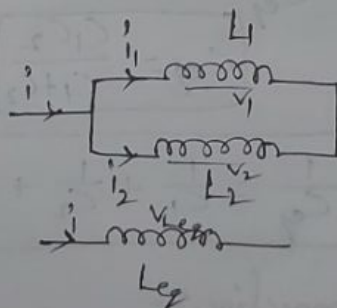 L1
i1
i
V1
i2
V2
L2
i
VLeq
Leq